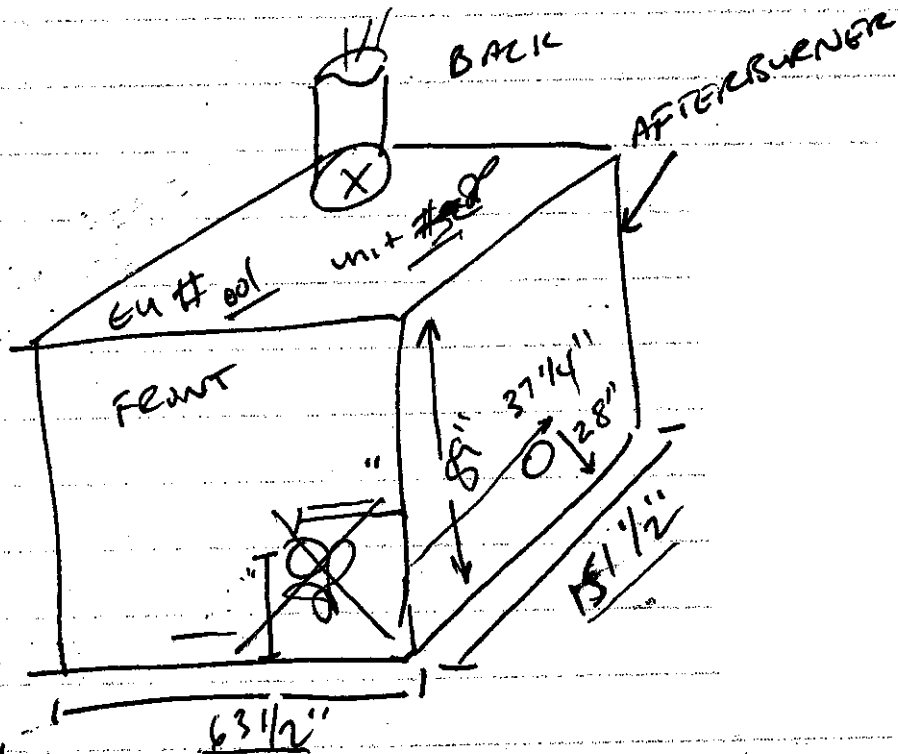 BACK
AFTERBURNER
EU # 001 unit
FRONT
37 1/4"
28"
"
"
63 1/2"